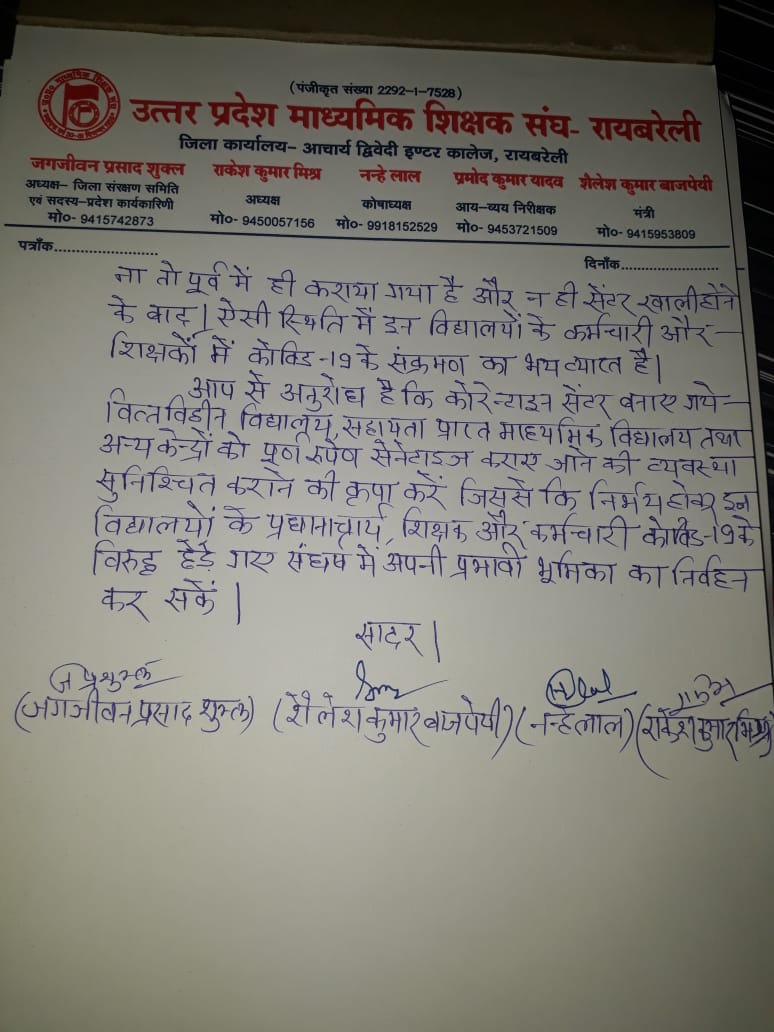 (पंजीकृत संख्या 2292-1-7528)
उत्तर प्रदेश माध्यमिक शिक्षक संघ- रायबरेली
जिला कार्यालय- आचार्य द्विवेदी इण्टर कालेज, रायबरेली
जगजीवन प्रसाद शुक्ल राकेश कुमार मिश्र नन्हे लाल प्रमोद कुमार यादव शैलेश कुमार बाजपेयी
अध्यक्ष- जिला संरक्षण समिति अध्यक्ष कोषाध्यक्ष आय-व्यय निरीक्षक मंत्री
एवं सदस्य-प्रदेश कार्यकारिणी
मो०- 9415742873 मो०- 9450057156 मो०- 9918152529 मो०- 9453721509 मो०- 9415953809
पत्राँक.......................... दिनाँक........................
ना तो पूर्व में ही कराया गया है और न ही सेंटर खाली होने
के बाद। ऐसी स्थिति में इन विद्यालयों के कर्मचारी और-
शिक्षकों में कोविड-19 के संक्रमण का भय व्याप्त है।
आप से अनुरोध है कि कोरेन्टाइन सेंटर बनाए गये-
वित्तविहीन विद्यालय, सहायता प्राप्त माध्यमिक विद्यालय तथा
अन्य केन्द्रों को पूर्ण रुपेण सेनेटाइज कराए जाने की व्यवस्था
सुनिश्चित कराने की कृपा करें जिससे कि निर्भय होकर इन
विद्यालयों के प्रधानाचार्य, शिक्षक और कर्मचारी कोविड-19 के
विरुद्ध छेड़े गए संघर्ष में अपनी प्रभावी भूमिका का निर्वहन
कर सकें।
सादर।
(जगजीवन प्रसाद शुक्ल) (शैलेश कुमार बाजपेयी) (नन्हे लाल) (राकेश कुमार मिश्र)